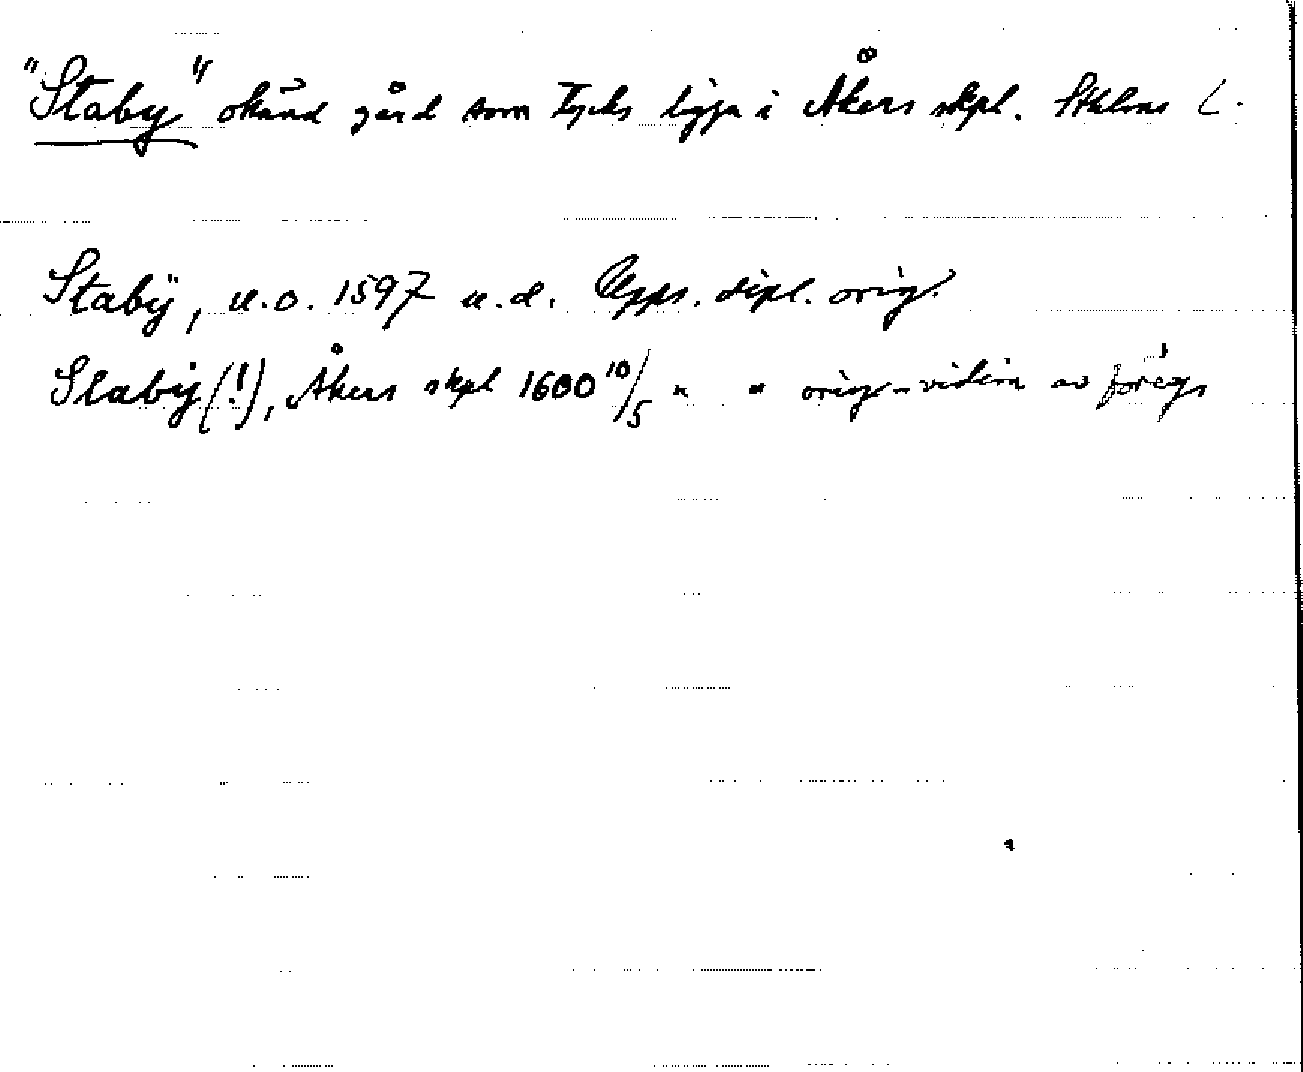 "Staby" okänd gård som tycks ligga i Åkers skpl. Sthlms L.
Stabÿ, u.o. 1597 u.d. Upps. dipl. orig.
Slabÿ(!), Åkers skpl 1600 10/5 " " orig-vidim av föregs